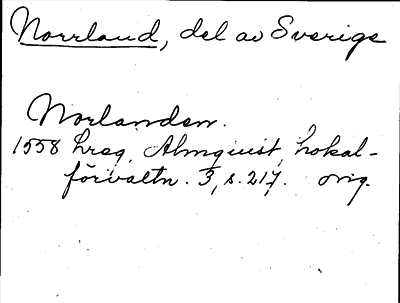 Norrland, del av Sverige
Norlanden.
1558 hreg, Almquist, Lokal-
förvaltn. 3, s. 217. orig.